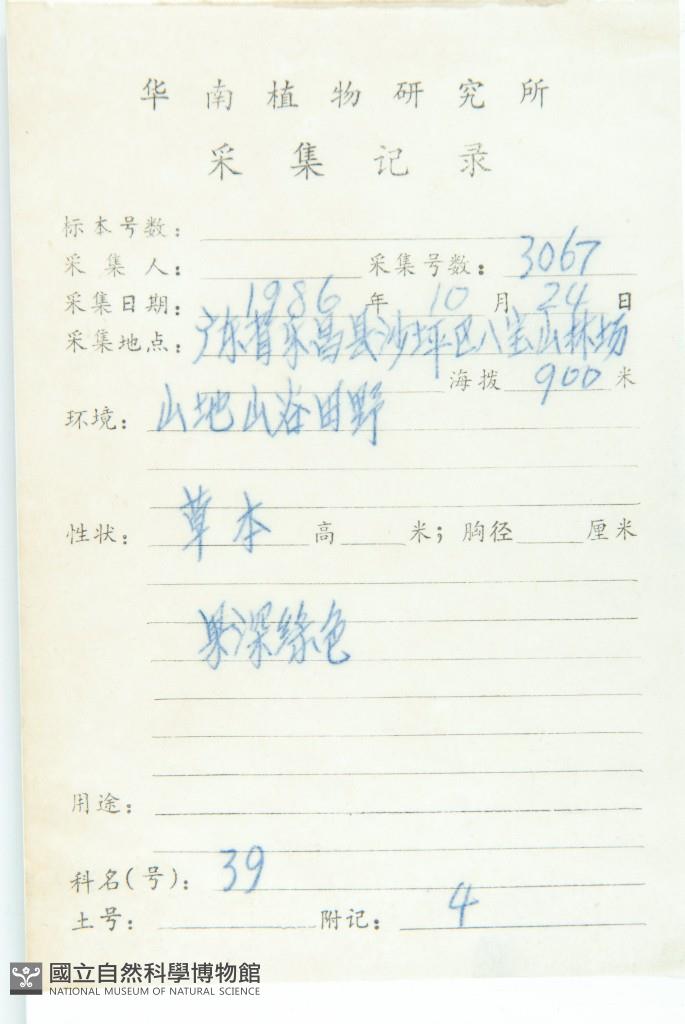 华南植物研究所
采集记录
标本号数:
采集人: 采集号数: 3067
采集日期: 1986年10月24日
采集地点: 广东省乐昌县沙坪区八宝山林场
海拨 900 米
环境: 山地山谷田野
性状: 草本 高 米; 胸径 厘米
果深綠色
用途:
科名(号): 39
土号: 附记: 4
國立自然科學博物館
NATIONAL MUSEUM OF NATURAL SCIENCE